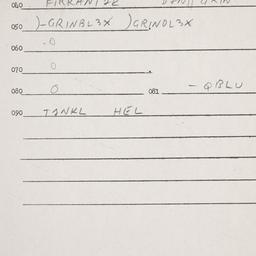 040
050 )-GRINBL3X )GRINDL3X
060 .0
070 0
080 0 081 - QBLU
090 TINKL HEL